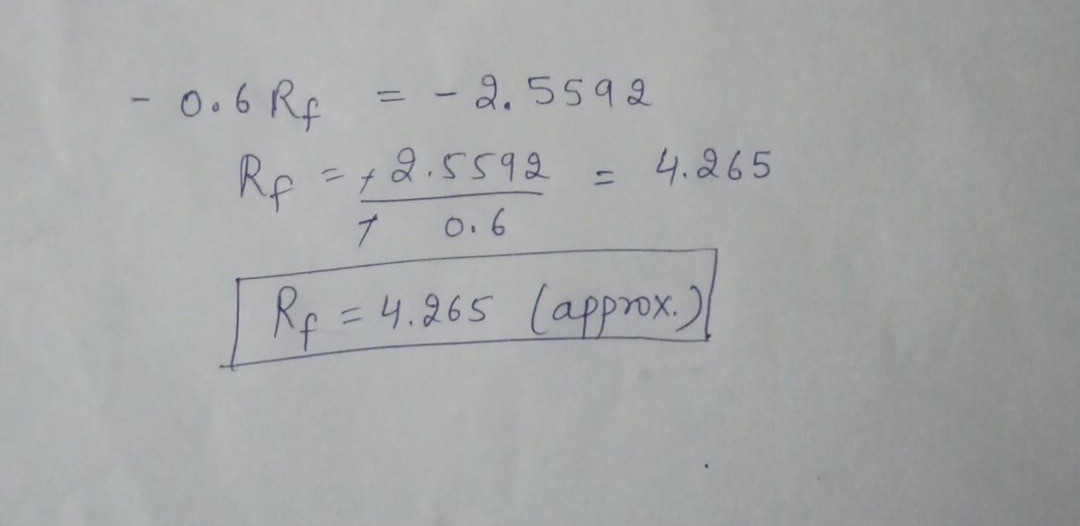 - 0.6 Rf = - 2.5592
Rf = + 2.5592 = 4.265
+ 0.6
Rf = 4.265 (approx.)